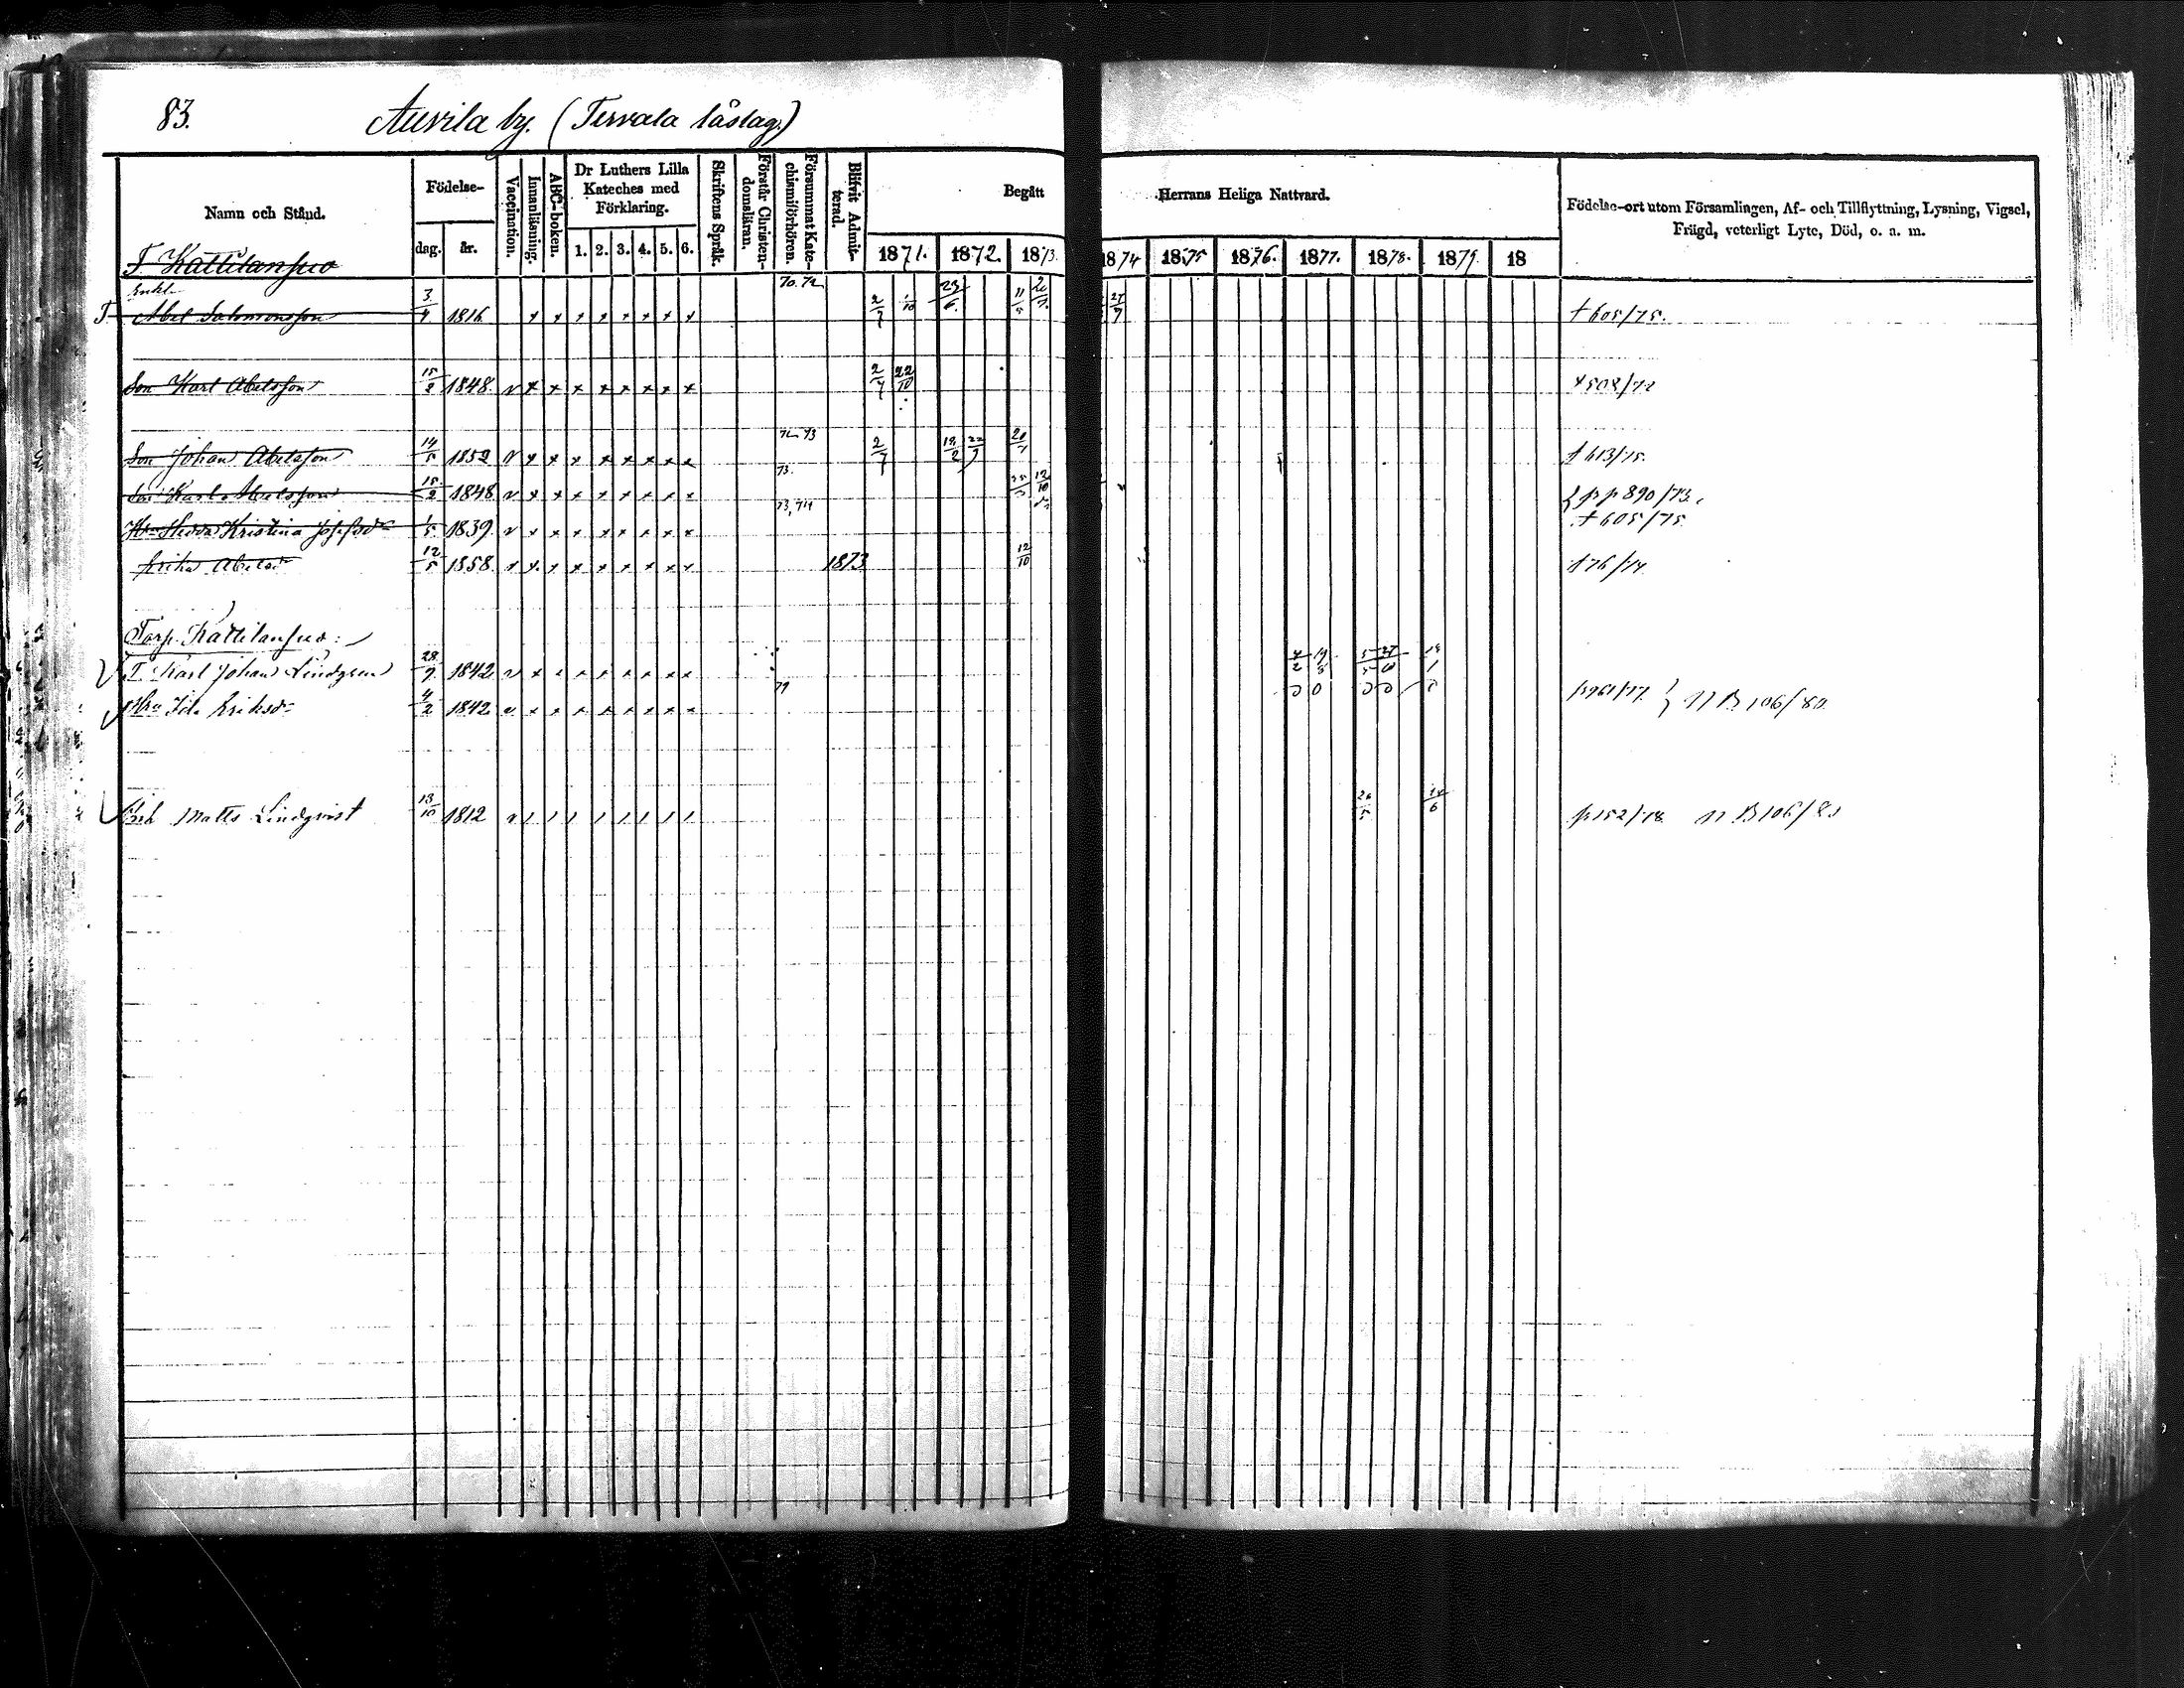 83. Auvila by. (Tervala läslag.)
Namn och Stånd. Födelse- dag. år. Vaccination. Innanläsning. ABC-boken. Dr Luthers Lilla Kateches med Förklaring. 1. 2. 3. 4. 5. 6. Skriftens Språk. Förstår Christendomsläran. Försummat Katechismiförhören. Blifvit Admitterad. Begått Herrans Heliga Nattvard. 1871. 1872. 1873. 1874 1875 1876. 1877. 1878. 1879. 18
Födelse-ort utom Församlingen, Af- och Tillflyttning, Lysning, Vigsel,
Frägd, veterligt Lyte, Död, o. a. m.
T. Kattilansuo
Enkl.
T. Abel Salomonsson 3/4 1816 x x x x x x x x 70. 72 2/7 23/6. 27/7 + 605/75.
Son Karl Abelsson 15/2 1848. v x x x x x x x x 2/7 22/10 + 502/72
Son Johan Abelsson 14/5 1852 v x x x x x x x x 72 73 2/7 + 613/75.
Son Karl Abelsson 15/2 1848 v x x x x x x x x 73. 12/10 p 890/73.
Hu Hedda Kristina Josefsdr 1/5 1839. v x x x x x x x x 73, 74 + 605/75.
Erika Abelsdr 12/5 1858. x x x x x x x x x 1873 12/10 176/74
Torp. Kattilansuo:
T. Karl Johan Lindgren 28/9 1842 v x x x x x x x x
Hru Ida Eriksdr 4/2 1842 v x x x x x x x x 79 p961/77. } N B. 106/80.
Matts Lindqvist 13/10 1812 26/5 p 152/78. N B 106/80